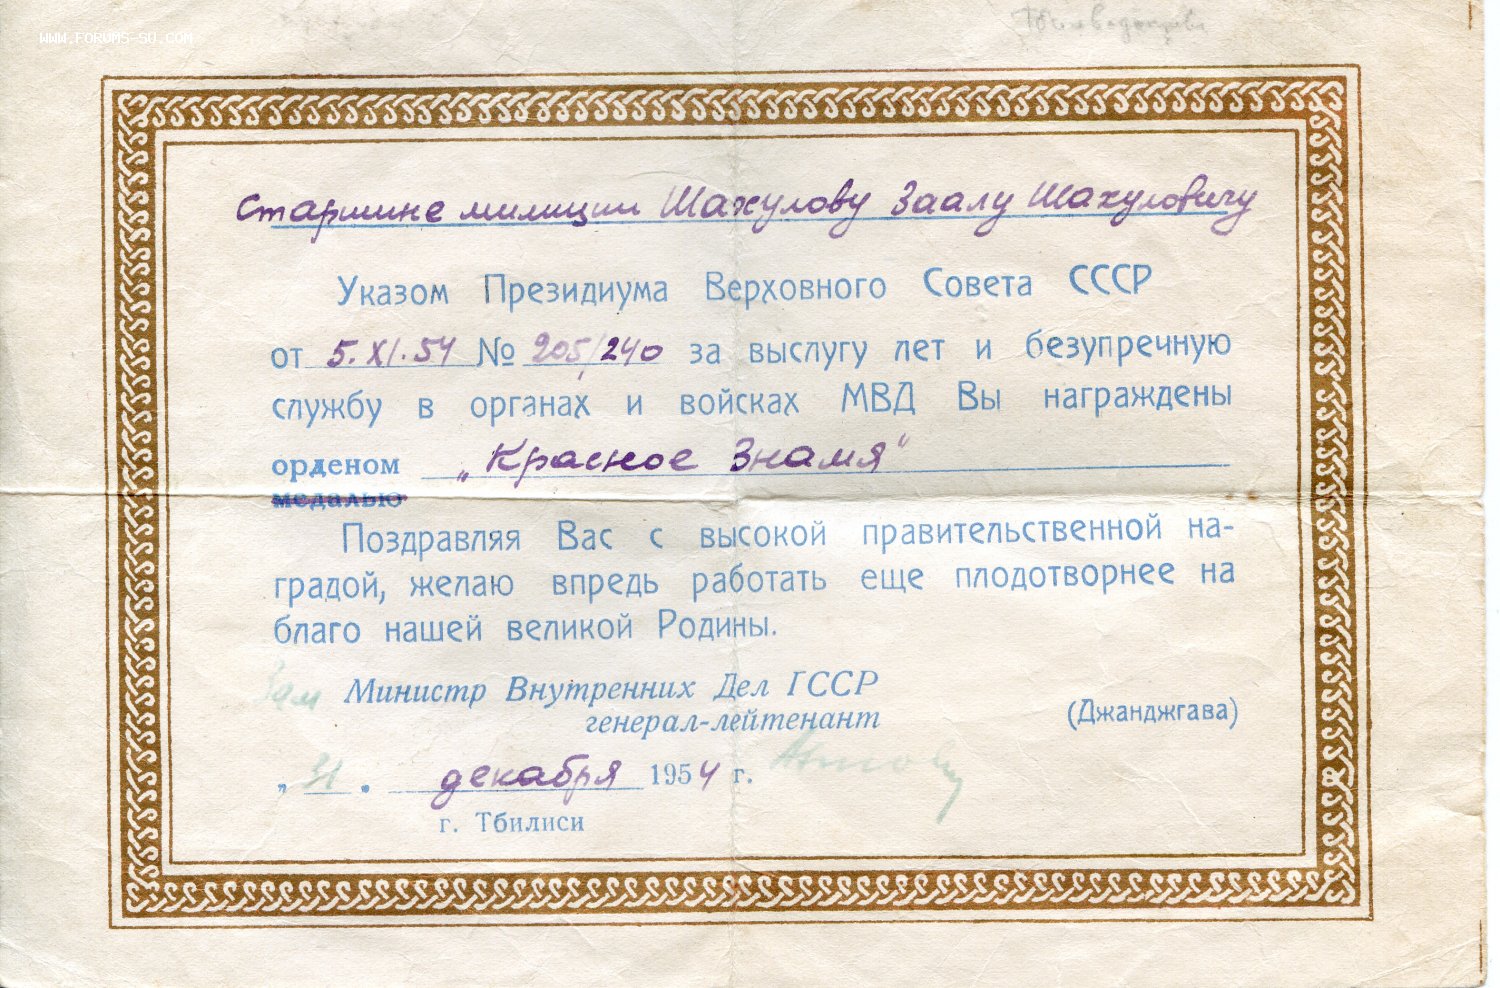 WWW.FORUMS-SU.COM
Старшине милиции Шахулову Заалу Шахуловичу
Указом Президиума Верховного Совета СССР
от 5.XI.54 № 205/240 за выслугу лет и безупречную
службу в органах и войсках МВД Вы награждены
орденом „Красное Знамя“
медалью
Поздравляя Вас с высокой правительственной на-
градой, желаю впредь работать еще плодотворнее на
благо нашей великой Родины.
Зам Министр Внутренних Дел ГССР
генерал-лейтенант (Джанджгава)
„31“ декабря 1954 г.
г. Тбилиси